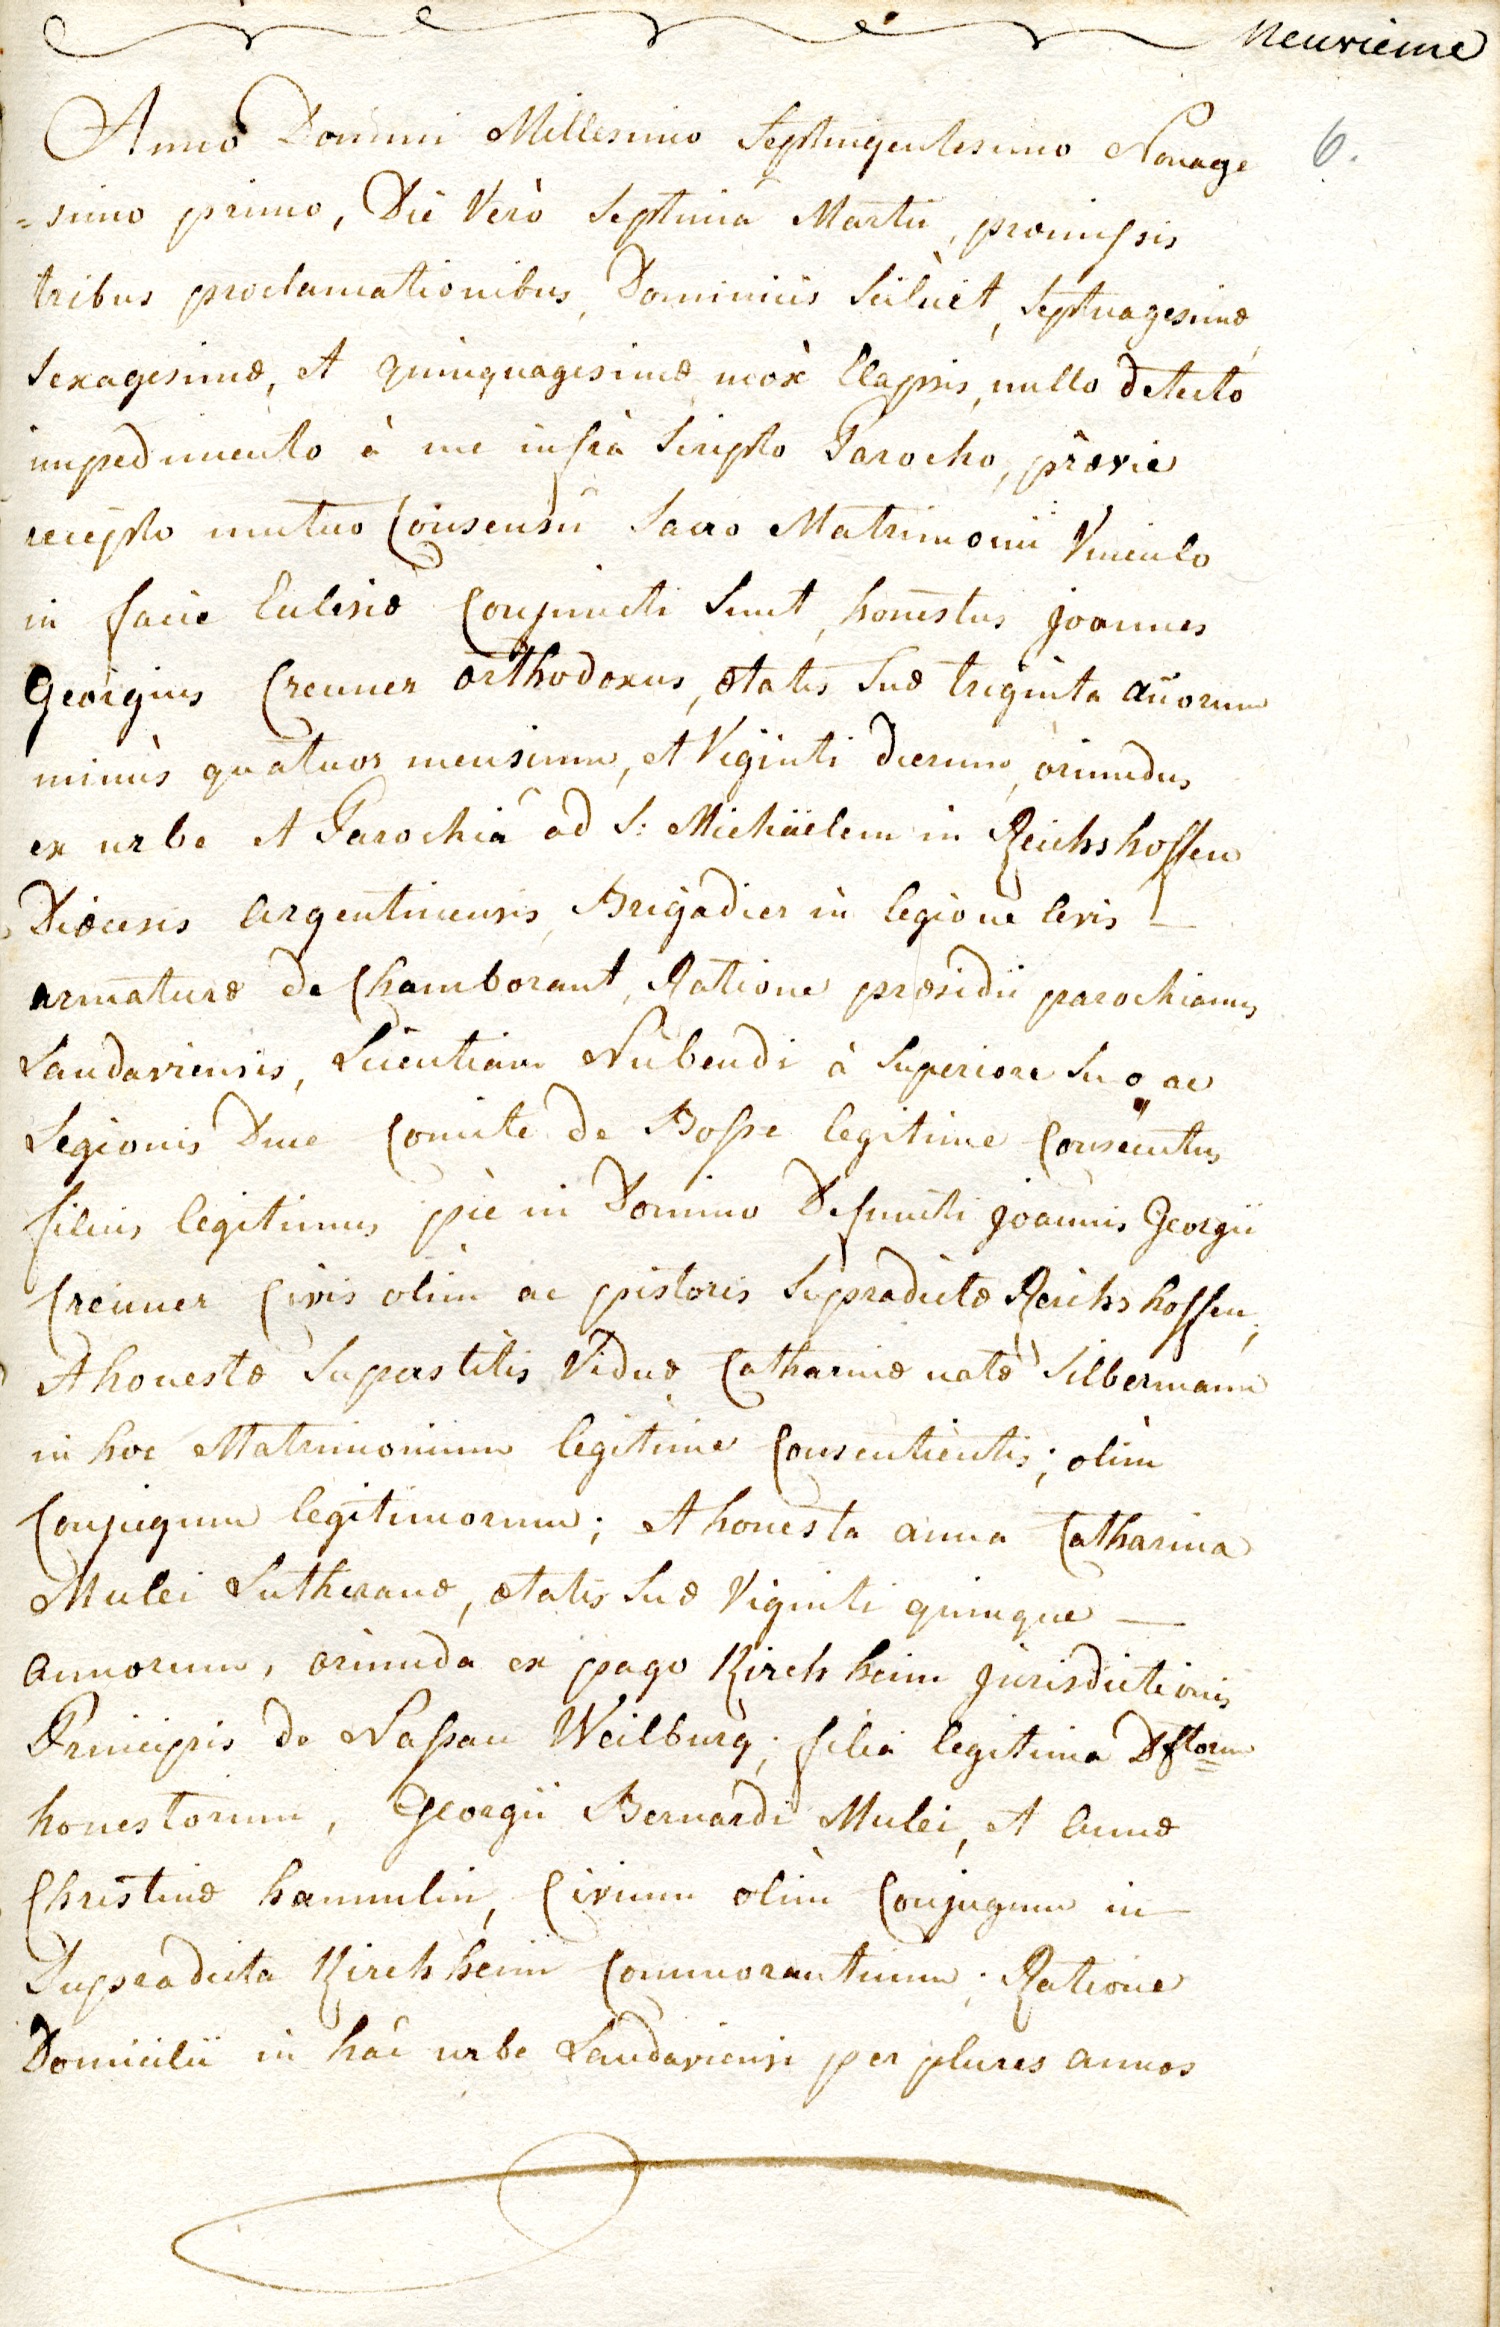 neuvieme
Anno Domini Millesimo Septingentesimo Nonage
6.
=simo primo, Die Verò Septimâ Martii, præmissis
tribus proclamationibus, Dominicis scilicèt, Septuagesimæ,
Sexagesimæ, et quinquagesimæ mòx Elapsis, nullo detecto
impedimento à me infrà Scripto Parocho, prævie
recepto mutuo Consensû Sacro Matrimonii Vinculo
in facie Eclesiæ Conjuncti Sunt, honestus joannes
Georgius Creuner orthodoxus, ætatis Suæ triginta añorum
minùs quatuor mensium, et Viginti dierum, oriundus
ex urbe et Parochiâ ad S: Michäelem in Reichshoffen
Diœcesis Argentinensis, Brigadier in legione levis —
armaturæ de Chamborant, Ratione præsidii parochianus
Landaviensis, Licentiam Nubendi à Superiore Suo ac
Legionis Duce Comite de Bosse legitime Consecutus
filius legitimus piè in Domino Defuncti joannis Georgii
Creuner Civis olim ac pistoris Supradictæ Reichshoffen;
et honestæ Superstitis Viduæ Catharinæ natæ Silbermann
in hoc Matrimonium legitime Consentientis; olim
Conjugum legitimorum; et honesta anna Catharina
Mulei Lutheranæ, ætatis Suæ Viginti quinque —
annorum, oriunda ex pago Kirchheim jurisdictionis
Principis de Nassau Weilburg; filia legitima Dftorum
honestorum, Georgii Bernardi Mulei, et Annæ
Christinæ hammlin, Civium olim Conjugum in
Supradicta Kirchheim Commorantium; Ratione
Domicilii in hâc urbe Landaviensi per plures annos